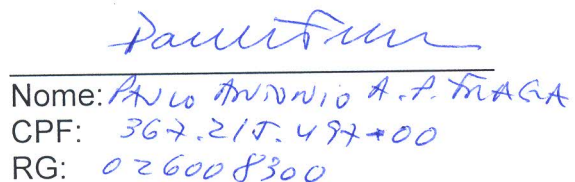 Nome: PAULO ANTONIO A.P. FRAGA
CPF: 367.215.497-00
RG: 026008300